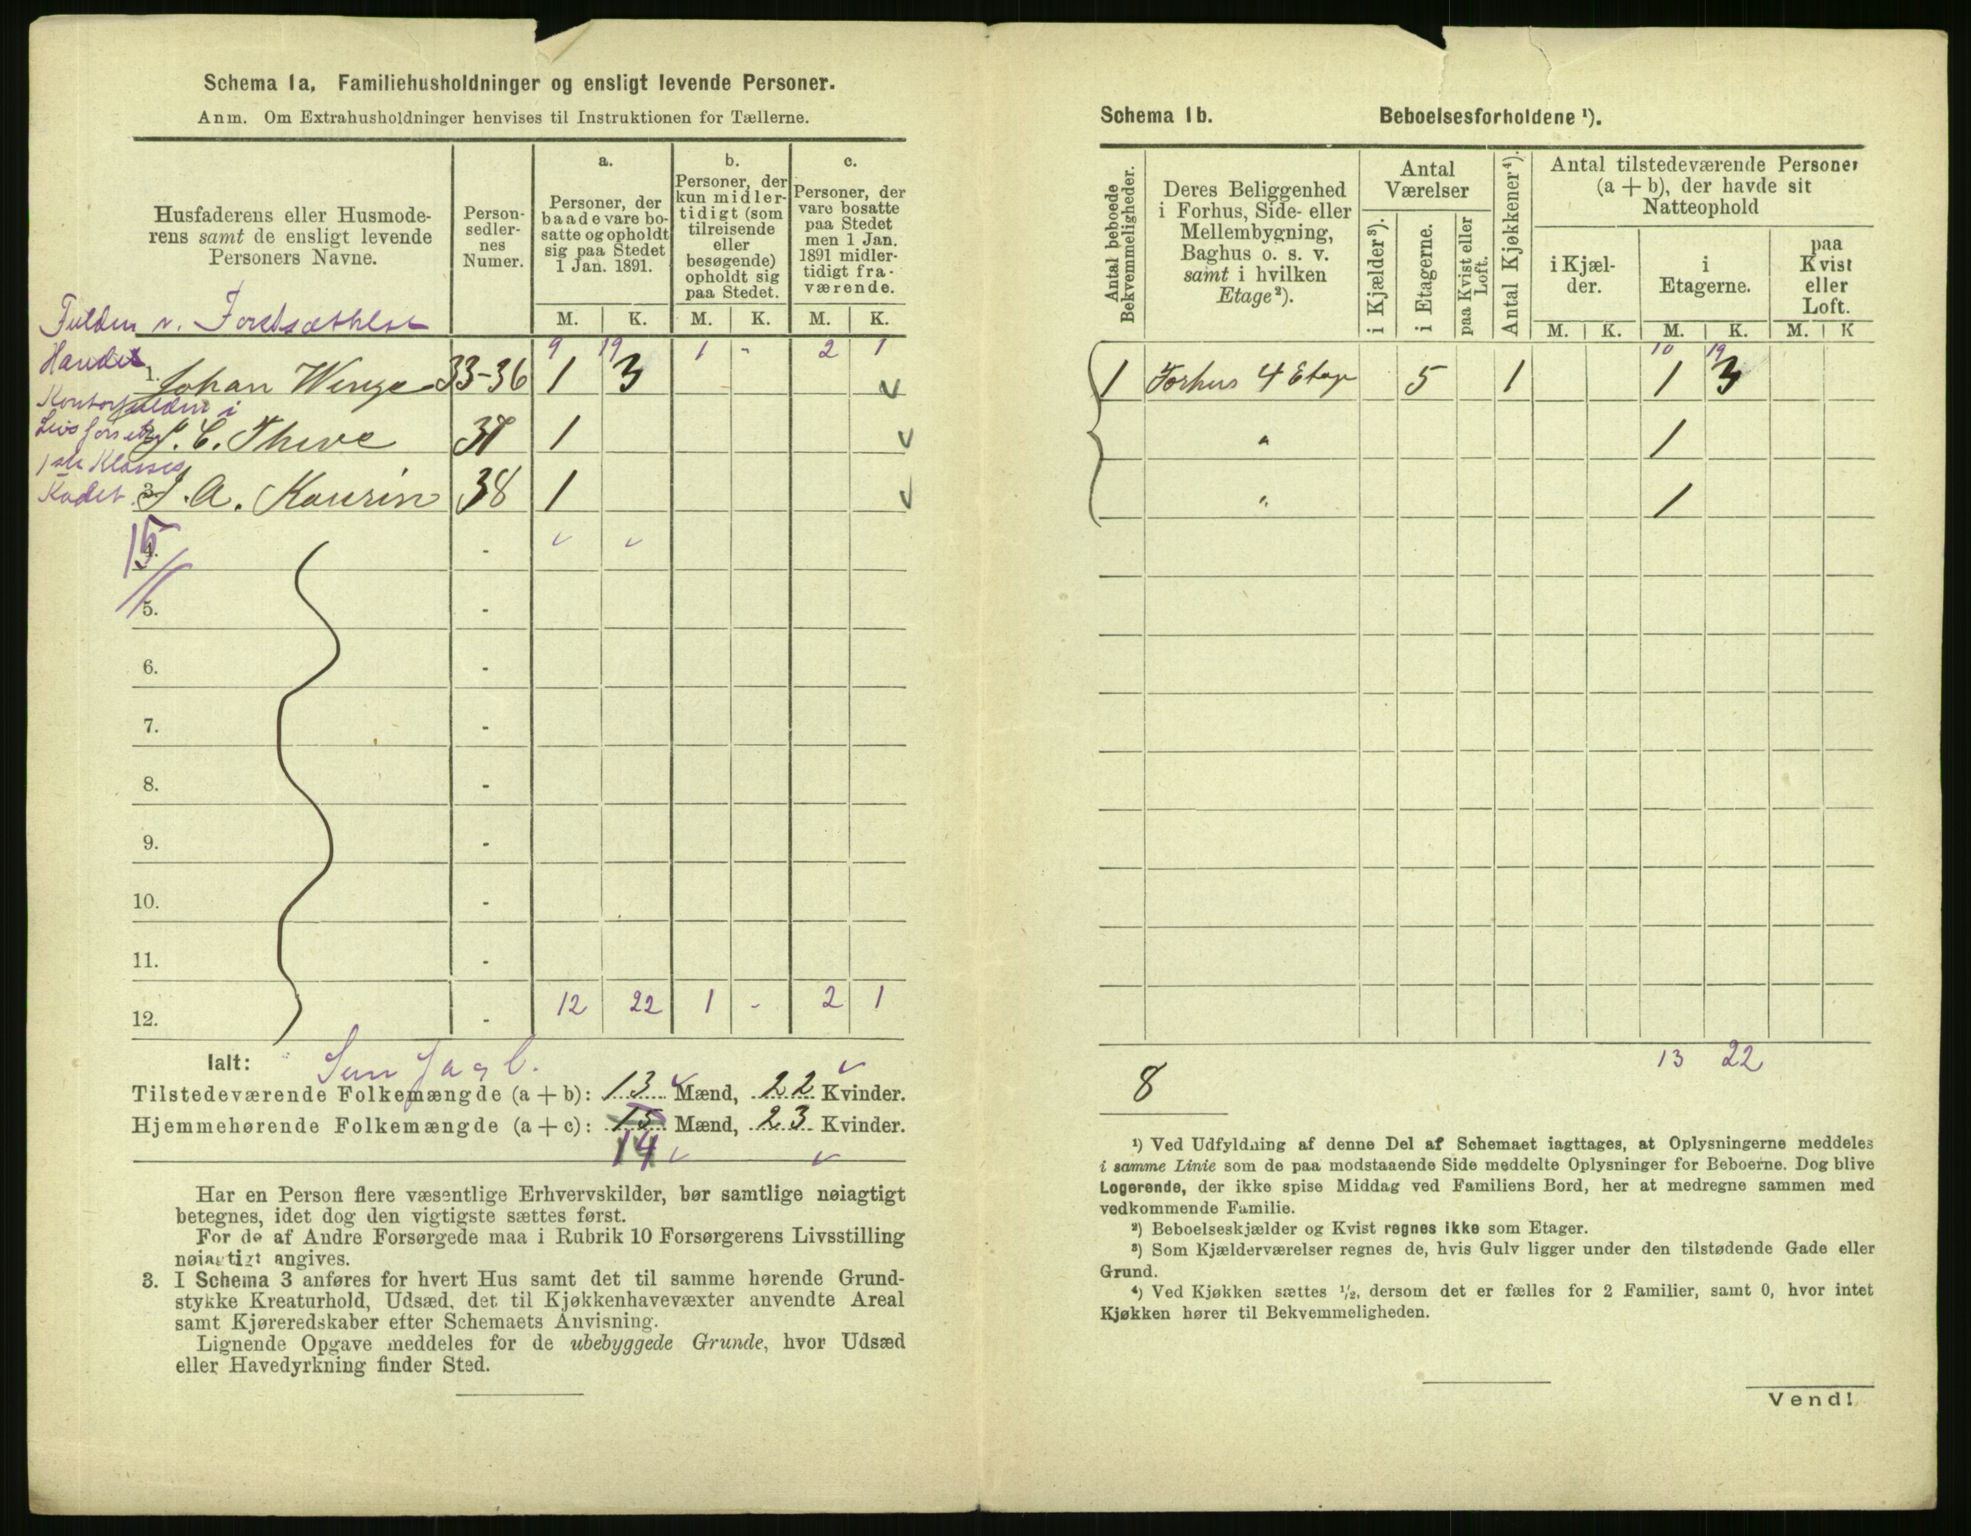 Schema 1a. Familiehusholdninger og ensligt levende Personer.
Anm. Om Extrahusholdninger henvises til Instruktionen for Tællerne.
Husfaderens eller Husmode-
rens samt de ensligt levende
Personers Navne.
Person-
sedler-
nes
Numer.
a.
Personer, der
baade vare bo-
satte og opholdt
sig paa Stedet
1 Jan. 1891.
b.
Personer, der
kun midler-
tidigt (som
tilreisende
eller
besøgende)
opholdt sig
paa Stedet.
c.
Personer, der
vare bosatte
paa Stedet
men 1 Jan.
1891 midler-
tidigt fra-
værende.
M. K. M. K. M. K.
9 19 1 - 2 1
1. Johan Winge 33-36 1 3
C. Theve 37 1
1ste Klasses
Kadet 3. A. Kaurin 38 1
15
4. -
5. -
6. -
7. -
8. -
9. -
10. -
11. -
12. - 12 22 1 - 2 1
Ialt:
Tilstedeværende Folkemængde (a + b): 13 Mænd, 22 Kvinder.
Hjemmehørende Folkemængde (a + c): 15 Mænd, 23 Kvinder.
14
Har en Person flere væsentlige Erhvervskilder, bør samtlige nøiagtigt
betegnes, idet dog den vigtigste sættes først.
For de af Andre Forsørgede maa i Rubrik 10 Forsørgerens Livsstilling
nøiagtigt angives.
3. I Schema 3 anføres for hvert Hus samt det til samme hørende Grund-
stykke Kreaturhold, Udsæd, det til Kjøkkenhavevæxter anvendte Areal
samt Kjøreredskaber efter Schemaets Anvisning.
Lignende Opgave meddeles for de ubebyggede Grunde, hvor Udsæd
eller Havedyrkning finder Sted.
Schema 1b. Beboelsesforholdene ¹).
Antal beboede
Bekvemmeligheder.
Deres Beliggenhed
i Forhus, Side- eller
Mellembygning,
Baghus o. s. v.
samt i hvilken
Etage²).
Antal
Værelser
i Kjælder³).
i Etagerne.
paa Kvist eller
Loft.
Antal Kjøkkener⁴).
Antal tilstedeværende Personer
(a + b), der havde sit
Natteophold
i Kjæl-
der.
i
Etagerne.
paa
Kvist
eller
Loft.
M. K. M. K. M. K
10 19
1 Forhus 4 Etage 5 1 1 3
" 1
" 1
13 22
8
¹) Ved Udfyldning af denne Del af Schemaet iagttages, at Oplysningerne meddeles
i samme Linie som de paa modstaaende Side meddelte Oplysninger for Beboerne. Dog blive
Logerende, der ikke spise Middag ved Familiens Bord, her at medregne sammen med
vedkommende Familie.
²) Beboelseskjælder og Kvist regnes ikke som Etager.
³) Som Kjælderværelser regnes de, hvis Gulv ligger under den tilstødende Gade eller
Grund.
⁴) Ved Kjøkken sættes ½, dersom det er fælles for 2 Familier, samt 0, hvor intet
Kjøkken hører til Bekvemmeligheden.
Vend!